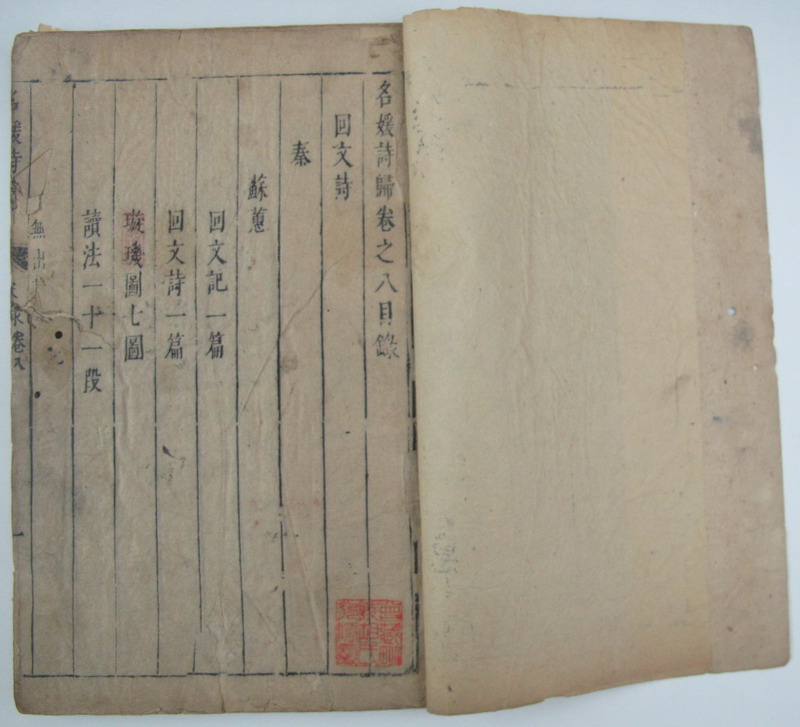 名媛詩歸卷之八目錄
回文詩
秦
蘇蕙
回文記一篇
回文詩一篇
璇璣圖七圖
讀法一十一段
無出
名媛詩歸
卷八
一